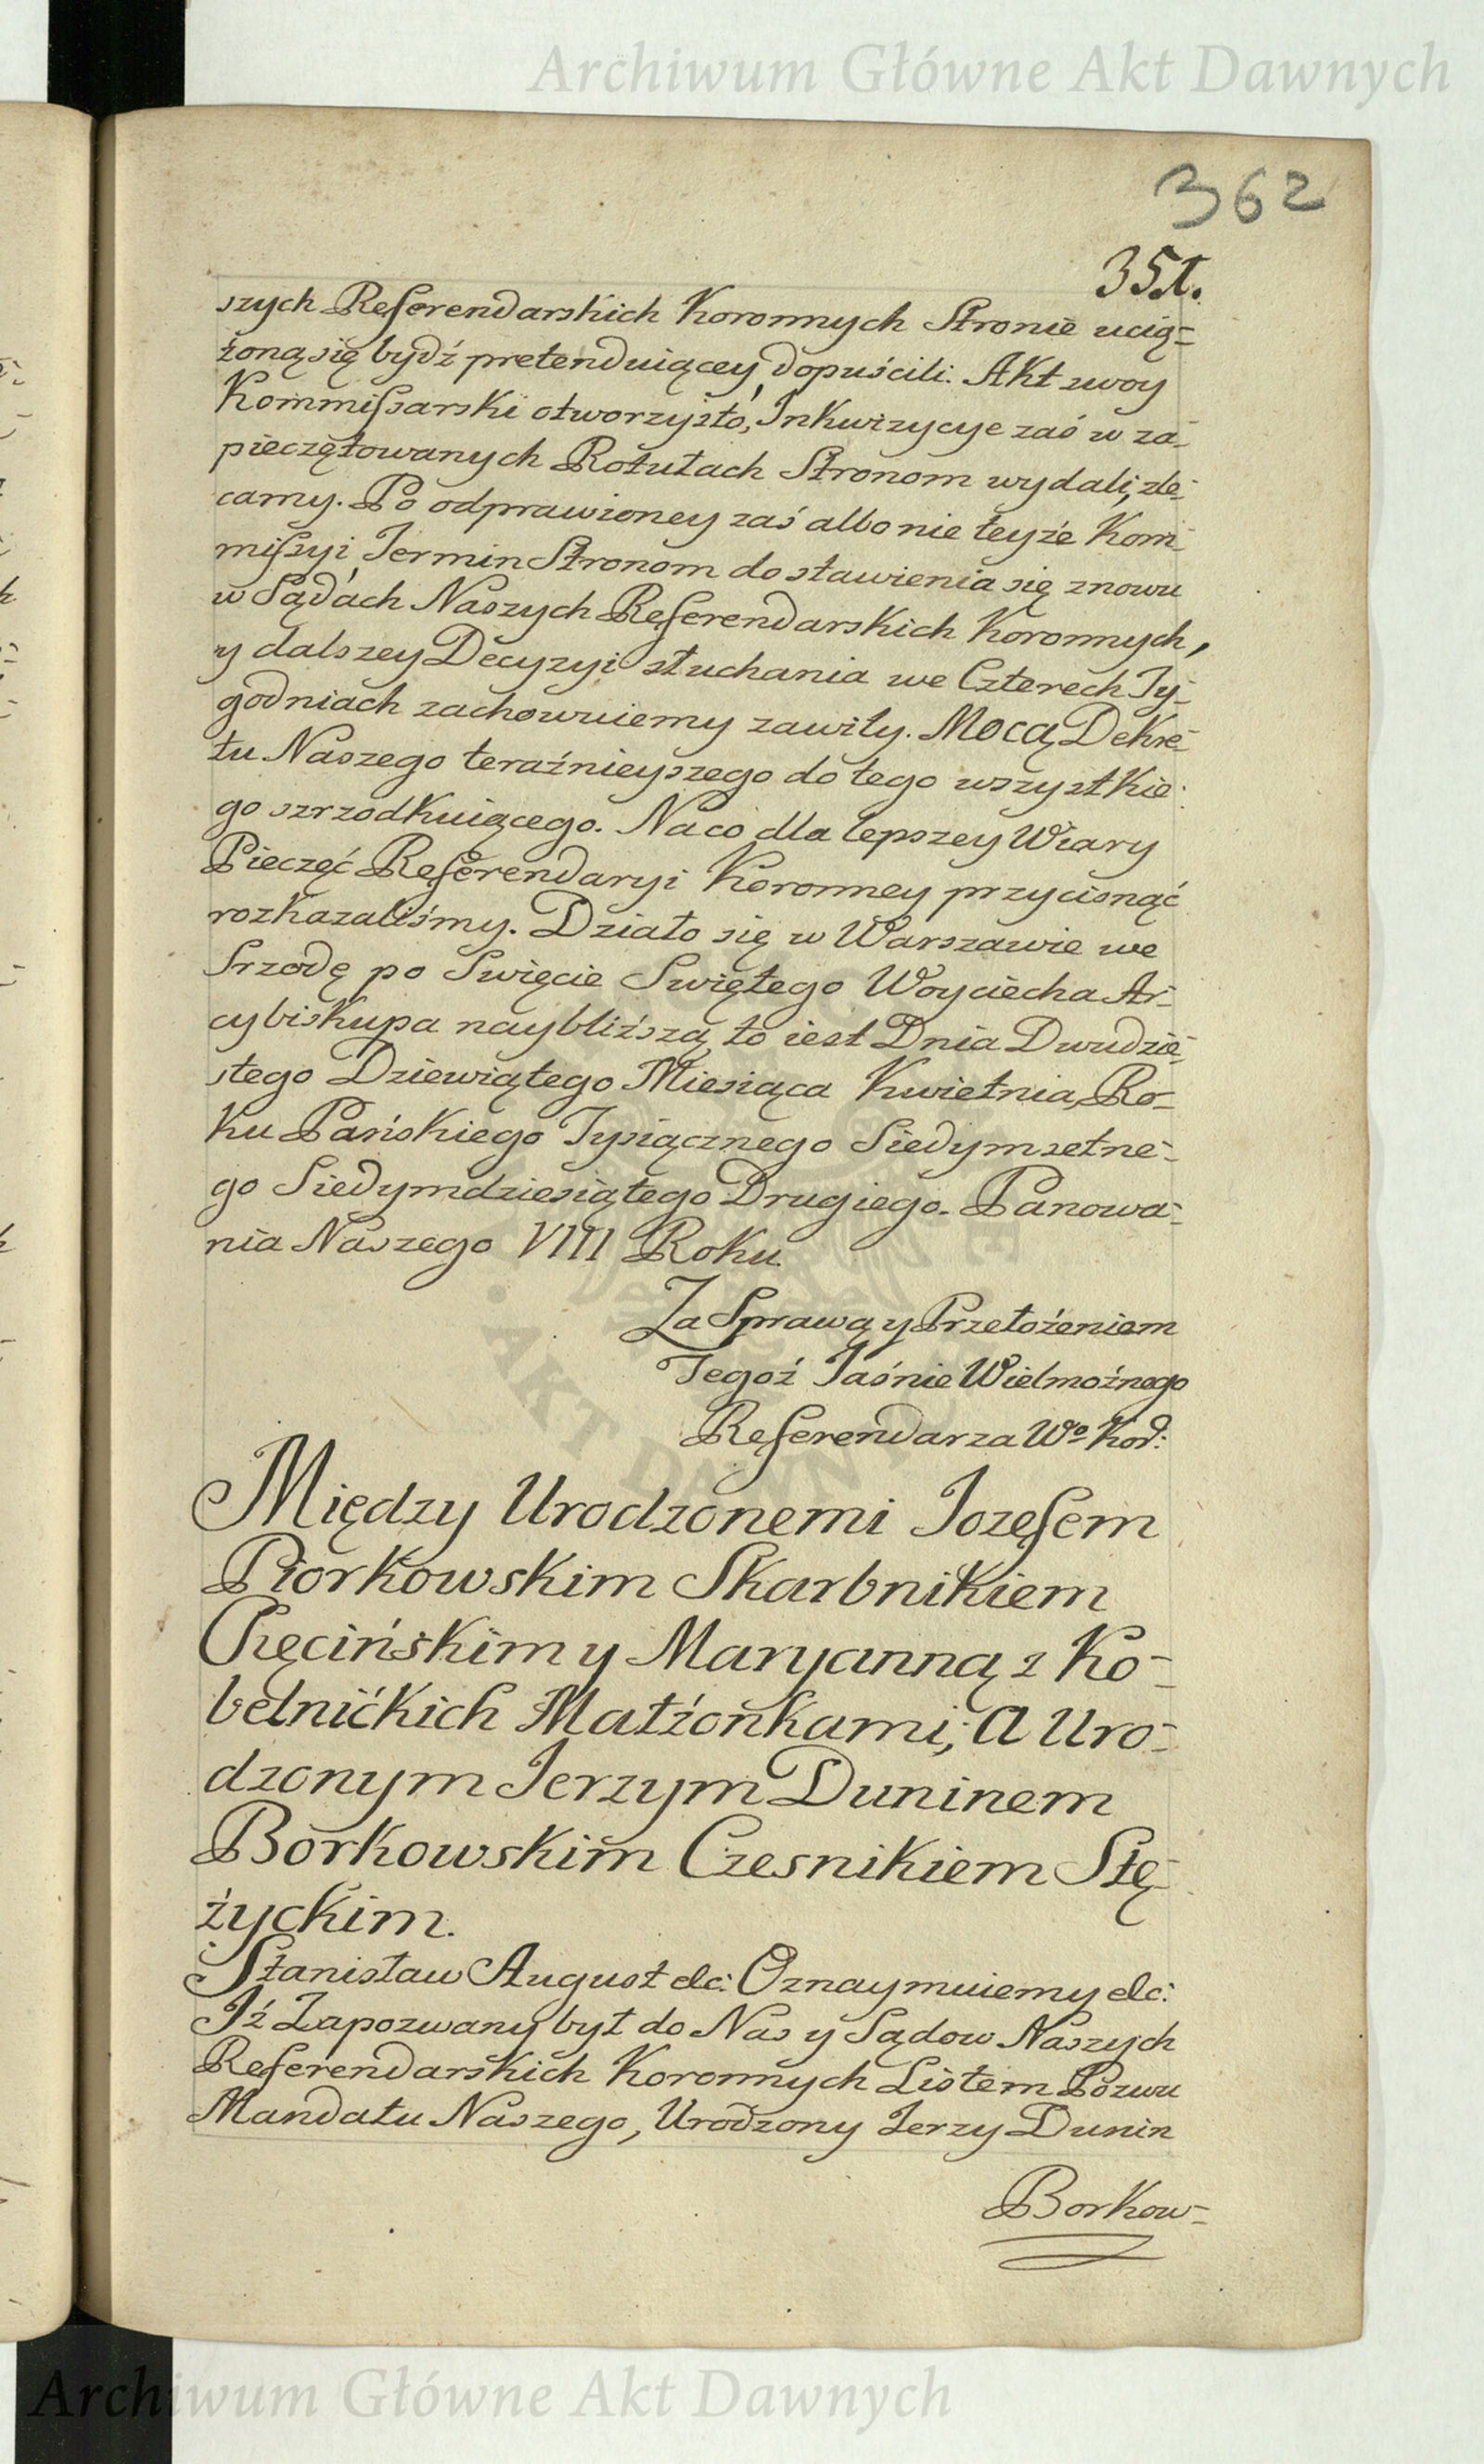 Archiwum Główne Akt Dawnych
362
351.
szych Referendarskich Koronnych Stronie ucią-
żoną się bydź pretenduiącey, dopuścili. Akt swoy
Kommissarski otworzysto, Inkwizycye zaś w za-
pieczętowanych Rotułach Stronom wydali, zle-
camy. Po odprawioney zaś albo nie teyże Kom-
missyi, Termin Stronom do stawienia się znowu
w Sądach Naszych Referendarskich Koronnych,
y dalszey Decyzyi słuchania we Czterech Ty-
godniach zachowuiemy zawity. Mocą Dekre-
tu Naszego teraźnieyszego do tego wszystkie-
go szrzodkuiącego. Na co dla lepszey Wiary
Pieczęć Referendaryi Koronney przycisnąć
rozkazaliśmy. Działo się w Warszawie we
Srzodę po Swięcie Swiętego Woyciecha Ar-
cybiskupa naybliższą, to iest Dnia Dwudzie-
stego Dziewiątego Miesiąca Kwietnia, Ro-
ku Pańskiego Tysiącznego Siedymsetne-
go Siedymdziesiątego Drugiego. Panowa-
nia Naszego VIII Roku.
Za Sprawą y Przełożeniem
Tegoż Jaśnie Wielmożnego
Referendarza Wo Kor:
Między Urodzonemi Jozefem
Piorkowskim Skarbnikiem
Chęcińskim y Maryanną z Ko-
belnickich Małżonkami, a Uro-
dzonym Jerzym Duninem
Borkowskim Czesnikiem Stę-
życkim.
Stanisław August etc: Oznaymuiemy etc:
Iż Zapozwany był do Nas y Sądow Naszych
Referendarskich Koronnych Listem Pozwu
Mandatu Naszego, Urodzony Jerzy Dunin
Borkow-
Archiwum Główne Akt Dawnych